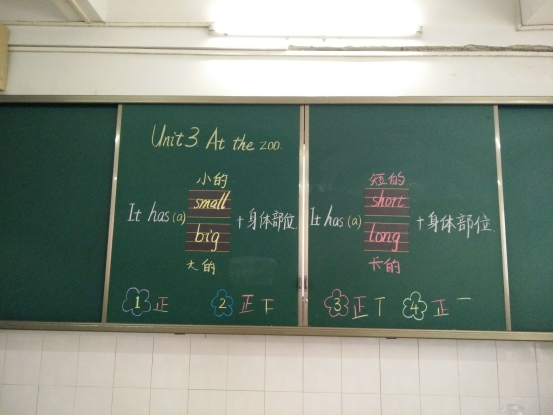 Unit 3 At the zoo.
小的
small
It has (a)
+身体部位.
big
大的
短的
short
It has (a)
+身体部位.
long
长的
1 正
2 正下
3 正丅
4 正一